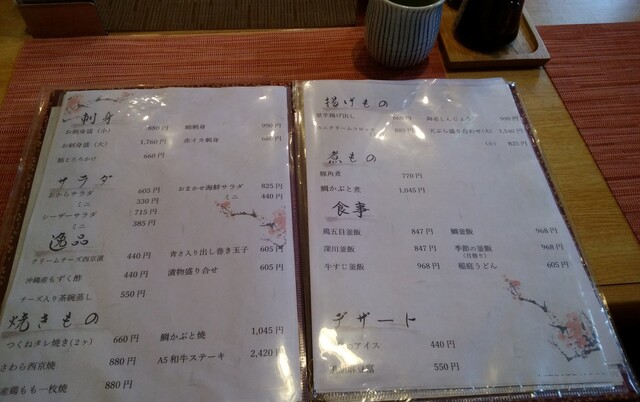 刺身
お刺身盛(小) 880円
お刺身盛(大) 1,760円
鮪とろりかけ 660円
鯛刺身 990円
赤イカ刺身 660円
サラダ
おからサラダ 605円
ミニ 330円
シーザーサラダ 715円
ミニ 385円
おまかせ海鮮サラダ 825円
ミニ 440円
逸品
クリームチーズ西京漬 440円
沖縄産もずく酢 440円
チーズ入り茶碗蒸し 550円
青さ入り出し巻き玉子 605円
漬物盛り合せ 605円
焼きもの
つくねタレ焼き(2ヶ) 660円
さわら西京焼 880円
産鶏もも一枚焼 880円
鯛かぶと焼 1,045円
A5和牛ステーキ 2,420円
揚げもの
海老しんじょう 990円
天ぷら盛り合わせ(大) 1,540円
(小) 825円
煮もの
豚角煮 770円
鯛かぶと煮 1,045円
食事
五目釜飯 847円
深川釜飯 847円
牛すじ釜飯 968円
鯛釜飯 968円
季節の釜飯 968円
(月替り)
稲庭うどん 605円
デザート
のアイス 440円
550円